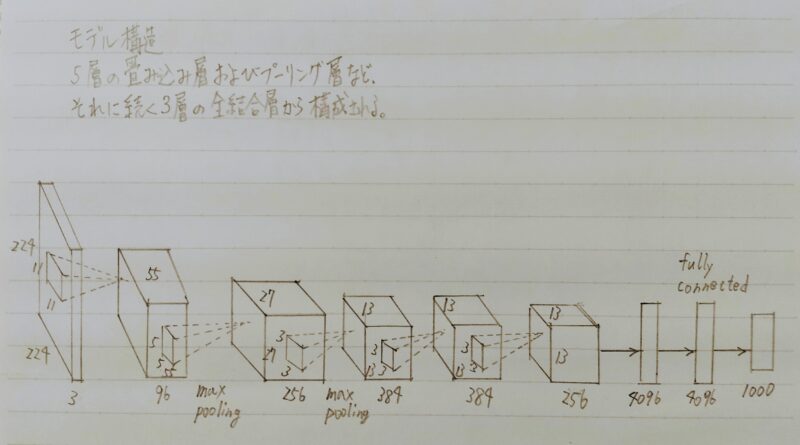 モデル構造
5層の畳み込み層およびプーリング層など、
それに続く3層の全結合層から構成される。
224
11
11
224
3
55
5
5
55
96
max
pooling
27
27
3
3
256
max
pooling
13
3
3
13
384
13
3
3
13
384
13
13
256
4096
fully
connected
4096
1000